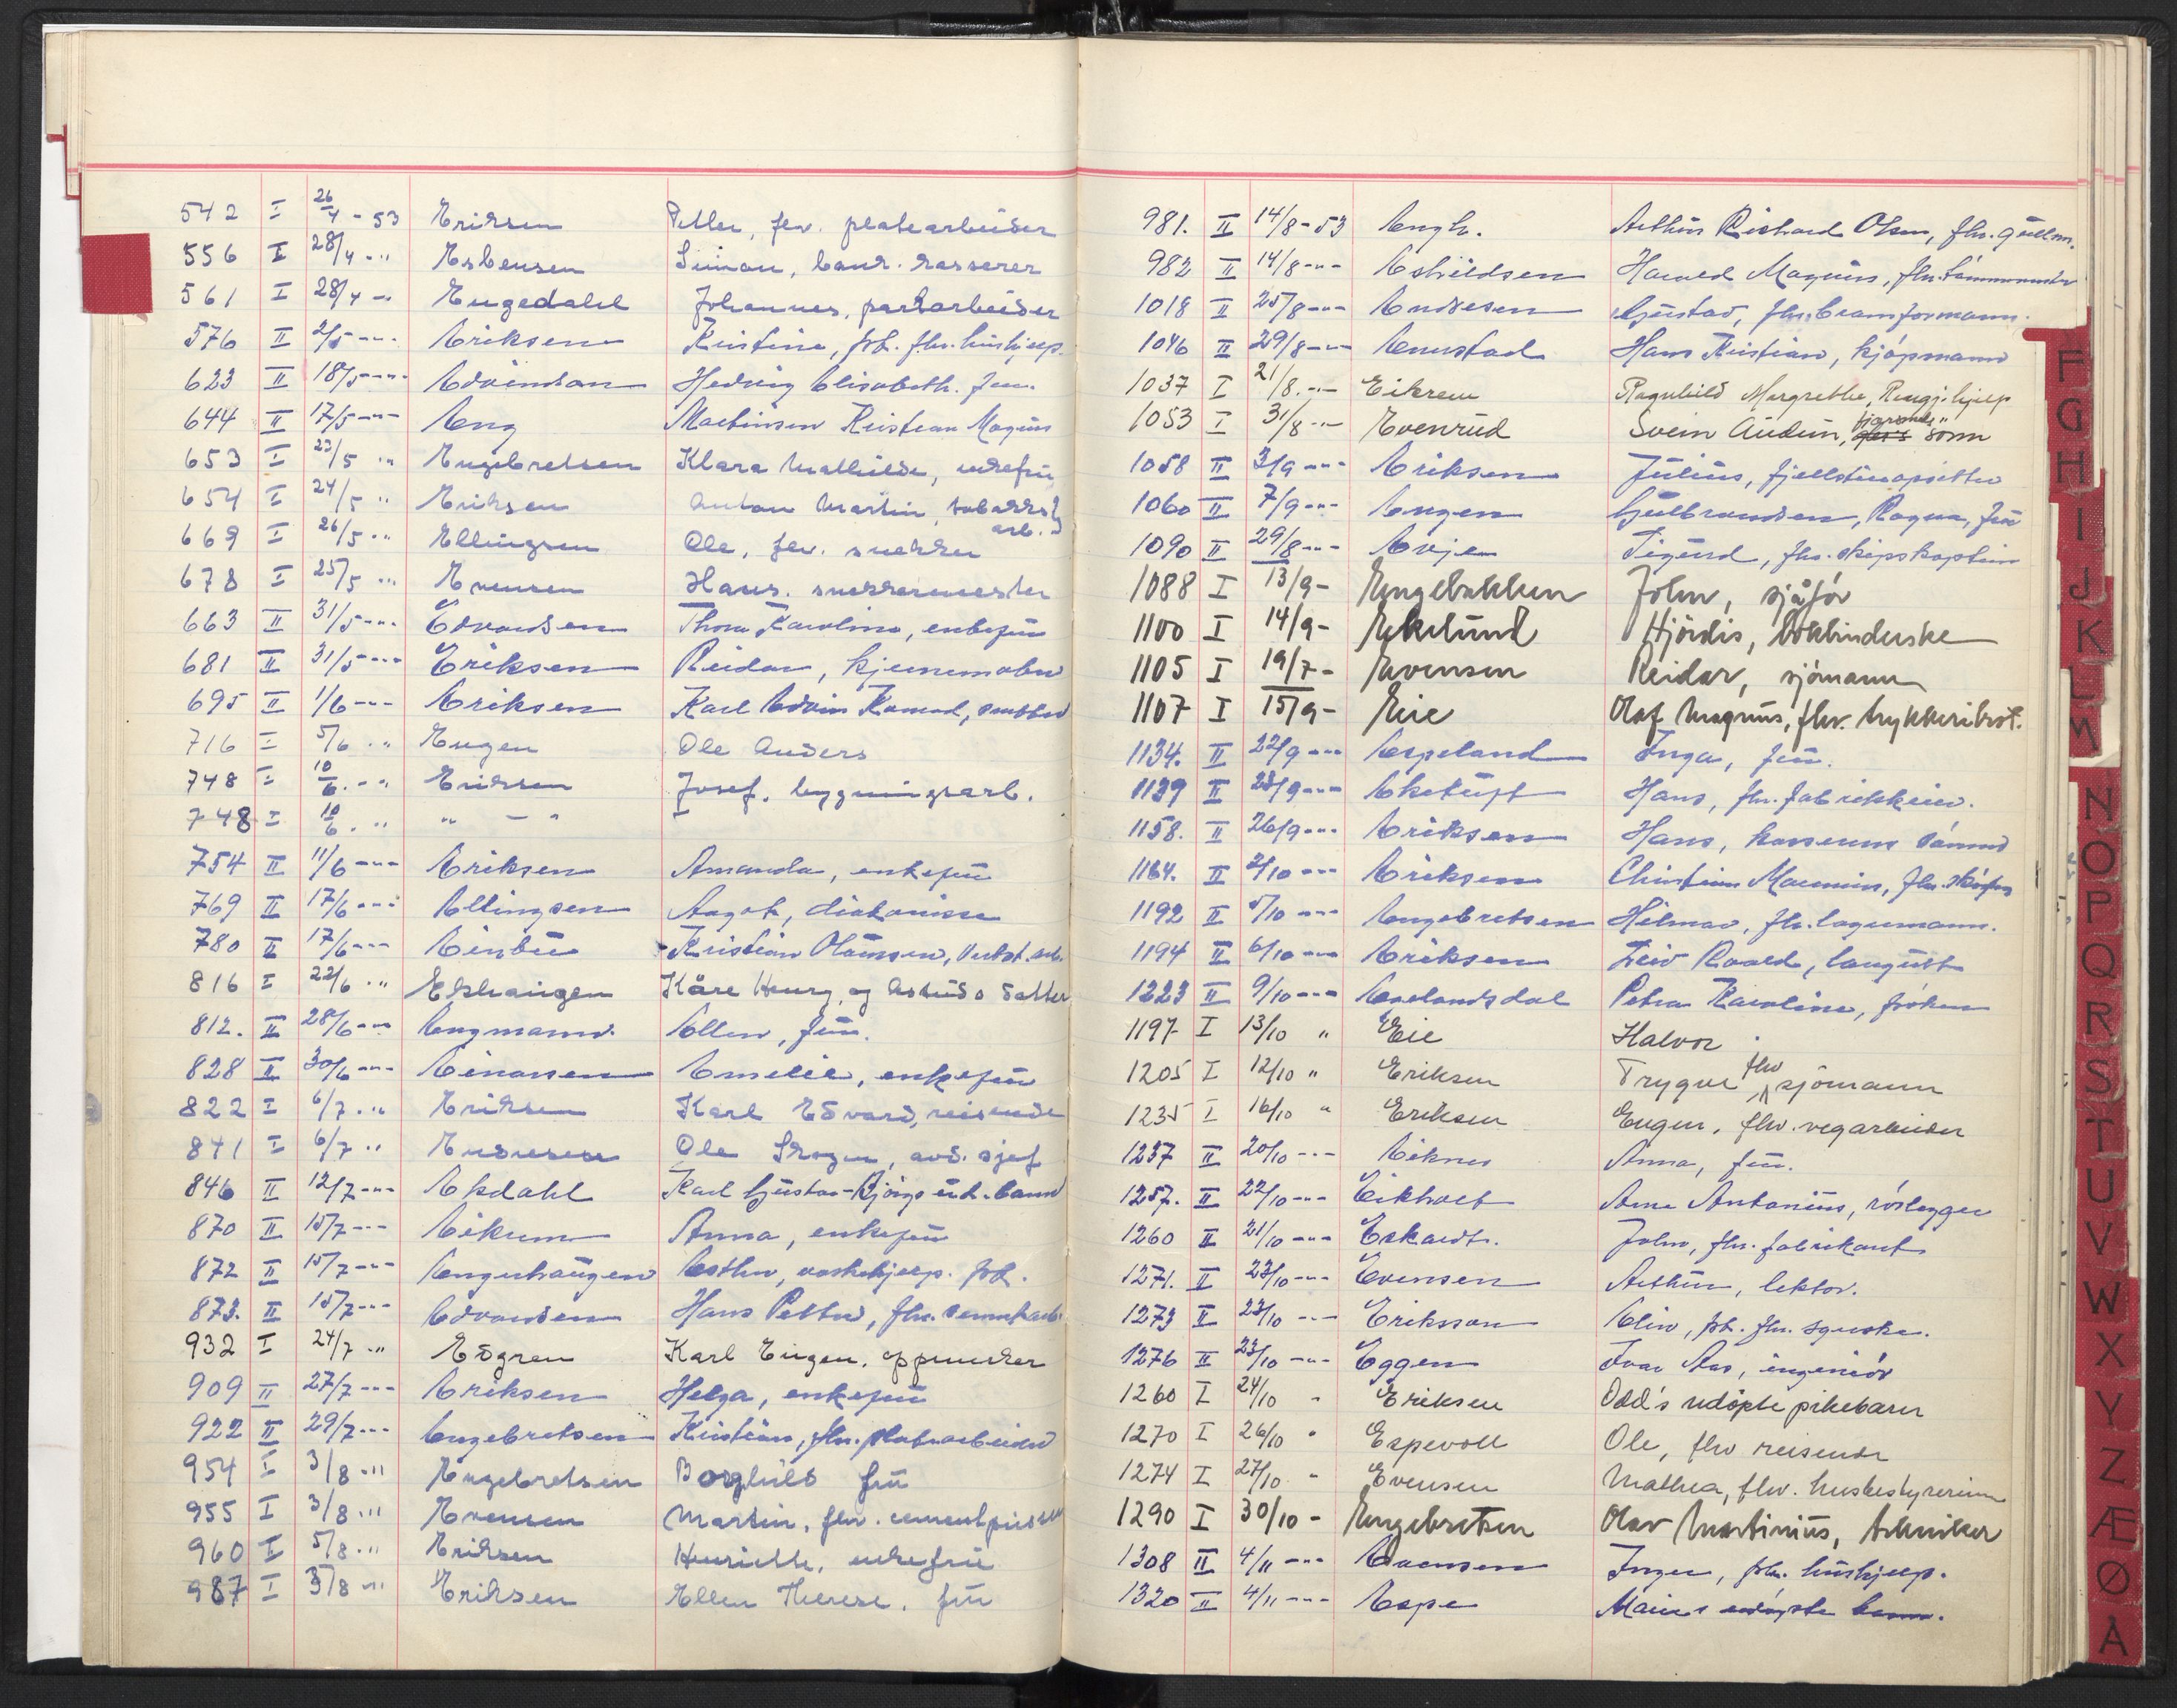 542 I 26/4 - 53 Eriksen Petter, fhv. platearbeider
556 I 28/4 - " Esbensen Simon, bank-kasserer
561 I 28/4 - Engedahl Johannes, parkarbeider
576 II 2/5 - " - Eriksen Kristine, frk. fhv. hushjelp.
623 II 18/5 - " - Edvindsen Hedvig Elisabeth. fru.
644 II 17/5 - " - Eng Martinsen Kristian Magnus
653 I 23/5 " Engebretsen Klara Mathilde, enkefru
654 I 24/5 " Eriksen Anton Martin, tobakks
arb.
669 I 26/5 - " Ellingsen Ole, fhv. snekker
678 I 25/5 - " Evensen Hans. snekkermester
663 II 31/5 - " - Edvardsen Thora Karoline, enkefru
681 II 31/5 - " - Eriksen Reidar,
695 II 1/6 - " - Eriksen Karl Edvin Konrad,
716 I 5/6 - " Engen Ole Anders
748 I 10/6. - " Eriksen Josef. bygningsarb.
748 I 10/6. " " - "
754 II 11/6 - " - Eriksen Amanda, enkefru
769 II 17/6 - " - Ellingsen Aagot, diakonisse
780 II 17/6 - " - Einbu Kristian Olaussen, Verkst. arb.
816 I 22/6 " Ekhaugen Kåre Henry, og Astrids datter
812. II 28/6 - " - Engmann. Ellen, fru.
828 II 30/6 - " - Einarsen Emelie, enkefru
822 I 6/7 - " Eriksen Karl Edvard, reisende
841 I 6/7 - " Endresen Ole Skogen, avd. sjef
846 II 12/7 - " - Ekdahl Karl Gustav - Bjørgs ud. barn
870 II 15/7 - " - Eikum Anna, enkefru
872 II 15/7 - " - Engerhaugen Esther, vaskehjelp. frk.
873. II 15/7 - " - Edvardsen Hans Petter, fhv.
932 I 24/7 - " Edgren Karl Eugen. oppmerker
909 II 27/7 - " - Eriksen Helga, enkefru
922 II 29/7 - " - Engebretsen Kristian, fhv. platearbeider
954 I 3/8 - " Engebretsen Borghild fru
955 I 3/8 - " Evensen Martin. fhv. cementpusser
960 I 5/8 - " Eriksen Henriette. enkefru
987 I 5/8 - " Eriksen Ellen Therese. fru
981. II 14/8 - 53 Engh. Arthur Richard Olsen, fhv. gullsm.
982 II 14/8 - " - Eskildsen Harald Magnus, fhv. tømmermester
1018 II 25/8 - " - Endresen Gustav, fhv. branformann.
1046 II 29/8 - " - Enerstad Hans Kristian, kjøpmann
1037 I 21/8. - " Eikrem Ragnhild Margrethe, Rengj. hjelp
1053 I 31/8 - " Evenrud Svein Audun, Bjarnes sønn
1058 II 3/9 - " - Eriksen Julius,
1060 II 7/9 - " - Engen Gulbrandsen, Ragna, fru
1090 II 29/8 - " - Evje Sigurd, fhv. skipskaptein
1088 I 13/9 - Engebakken John, sjåfør
1100 I 14/9 - Ekelund Hjørdis, bokbinderske
1105 I 19/7 - Evensen Reidar, sjømann
1107 I 15/9 - Eie Olaf Magnus, fhv. trykkeribest.
1134. II 22/9 - " - Espeland Inga, fru.
1139 II 23/9 - " - Eketuft Hans, fhv. fabrikkeier.
1158. II 26/9 - " - Eriksen Hans,
1164. II 2/10 - " - Eriksen
1192 II 5/10 - " - Engebretsen Hilmar, fhv. lagermann.
1194 II 6/10 - " - Eriksen Leiv Roald,
1223 II 9/10 - " - Espelandsdal Petra Karoline, frøken
1197 I 13/10 " Eie Halvor
1205 I 12/10 " Eriksen Trygve fhv sjømann
1235 I 16/10 " Eriksen Eugen, fhv. vegarbeider
1237 II 20/10 - " - Eiknes Anna, fru.
1257. II 22/10 - " - Eikholt Arne Antonius, rørlegger
1260 II 21/10 - " - Eckardt. John, fhv. fabrikant
1271. II 23/10 - " - Evensen Arthur, lektor.
1273 II 23/10 - " - Eriksson Elin, frk. fhv. syerske.
1276 II 23/10 - " - Eggen Ivar Aas, ingeniør
1260 I 24/10 " Eriksen Odd's udøpte pikebarn
1270 I 26/10 " Espevoll Ole, fhv reisende
1274 I 27/10 " Evensen Mathea, fhv. husbestyrerinne
1290 I 30/10 - Engebretsen Olav Martinius, tekniker
1308 II 4/11 - " - Evensen Inger, frk. hushjelp.
1320 II 4/11 - " - Espe Maries udøpte barn.
F
G
H
I
J
K
L
M
N
O
P
Q
R
S
T
U
V
W
X
Y
Z
Æ
Ø
A